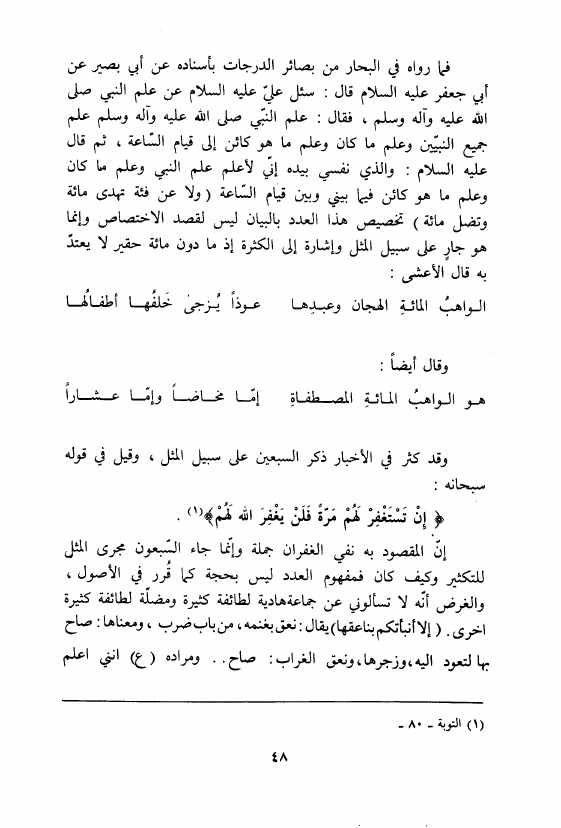 فما رواه في البحار من بصائر الدرجات بأسناده عن أبي بصير عن
أبي جعفر عليه السلام قال : سئل عليّ عليه السلام عن علم النبي صلى
الله عليه وآله وسلم ، فقال : علم النّبي صلى الله عليه وآله وسلم علم
جميع النبيّين وعلم ما كان وعلم ما هو كائن إلى قيام السّاعة ، ثم قال
عليه السلام : والذي نفسي بيده إنّي لأعلم علم النبي وعلم ما كان
وعلم ما هو كائن فيما بيني وبين قيام السّاعة ( ولا عن فئة تهدى مائة
وتضل مائة ) تخصيص هذا العدد بالبيان ليس لقصد الاختصاص وإنما
هو جارٍ على سبيل المثل وإشارة إلى الكثرة إذ ما دون مائة حقير لا يعتدّ
به قال الأعشى :
الواهبُ المائةِ الهجان وعبدِها عوذاً يُزجىٰ خَلفُها أطفالُها
وقال أيضاً :
هو الواهبُ المائةِ المصطفاةِ إمّا مخاضاً وإمّا عشاراً
وقد كثر في الأخبار ذكر السبعين على سبيل المثل ، وقيل في قوله
سبحانه :
﴿ إِنْ تَسْتَغْفِرْ لَهُمْ مَرّةً فَلَنْ يَغْفِرَ الله لَهُمْ﴾(١) .
إنّ المقصود به نفي الغفران جملة وإنّما جاء السّبعون مجرى المثل
للتكثير وكيف كان فمفهوم العدد ليس بحجة كما قُرر في الأصول ،
والغرض أنّه لا تسألوني عن جماعةهادية لطائفة كثيرة ومضلّة لطائفة كثيرة
اخرى . ( إلا أنبأتكم بناعقها) يقال : نعق بغنمه ، من باب ضرب ، ومعناها : صاح
بها لتعود اليه ، وزجرها ، ونعق الغراب : صاح . . ومراده ( ع ) انني اعلم
(١) التوبة ـ ٨٠ ـ
٤٨